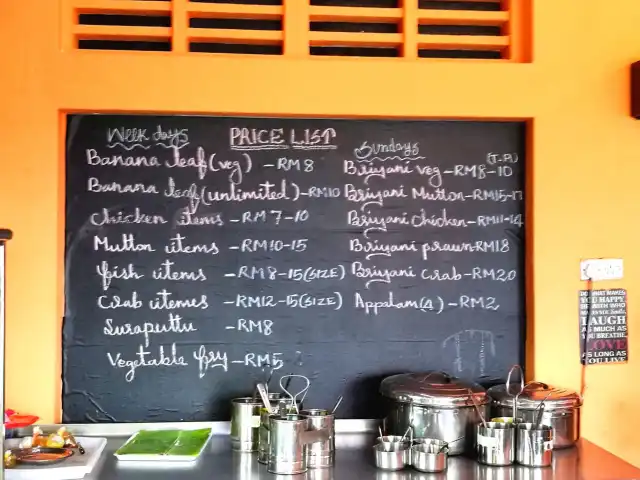 PRICE LIST
Week days
Banana leaf (veg) - RM 8
Banana leaf (unlimited) - RM10
Chicken items - RM 7-10
Mutton items - RM10-15
Fish items - RM 8-15 (SIZE)
Crab itemes - RM12-15 (SIZE)
Suraputtu - RM8
Vegetable fry - RM5
Sundays
(T.A)
Briyani veg - RM8-10
Briyani Mutton - RM15-17
Briyani Chicken - RM11-14
Briyani prawn - RM18
Briyani crab - RM20
Appalam (4) - RM2
DO WHAT MAKES
YOU HAPPY
BE WITH WHO
MAKES YOU Smile,
LAUGH
AS MUCH AS
YOU BREATHE.
LOVE
AS LONG AS
YOU LIVE